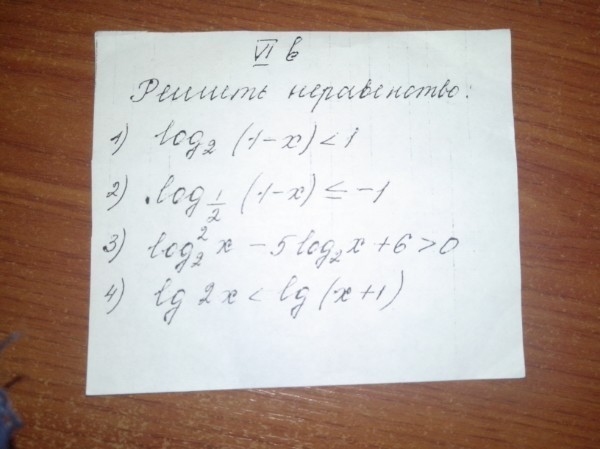 VI в
Решить неравенство:
1) log₂ (1-x) < 1
2) log_{1/2} (1-x) ≤ -1
3) log₂² x - 5 log₂ x + 6 > 0
4) lg 2x < lg (x+1)